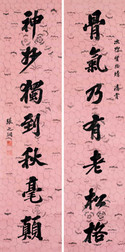 骨氣乃有老松格
神妙獨到秋毫顛
張之洞